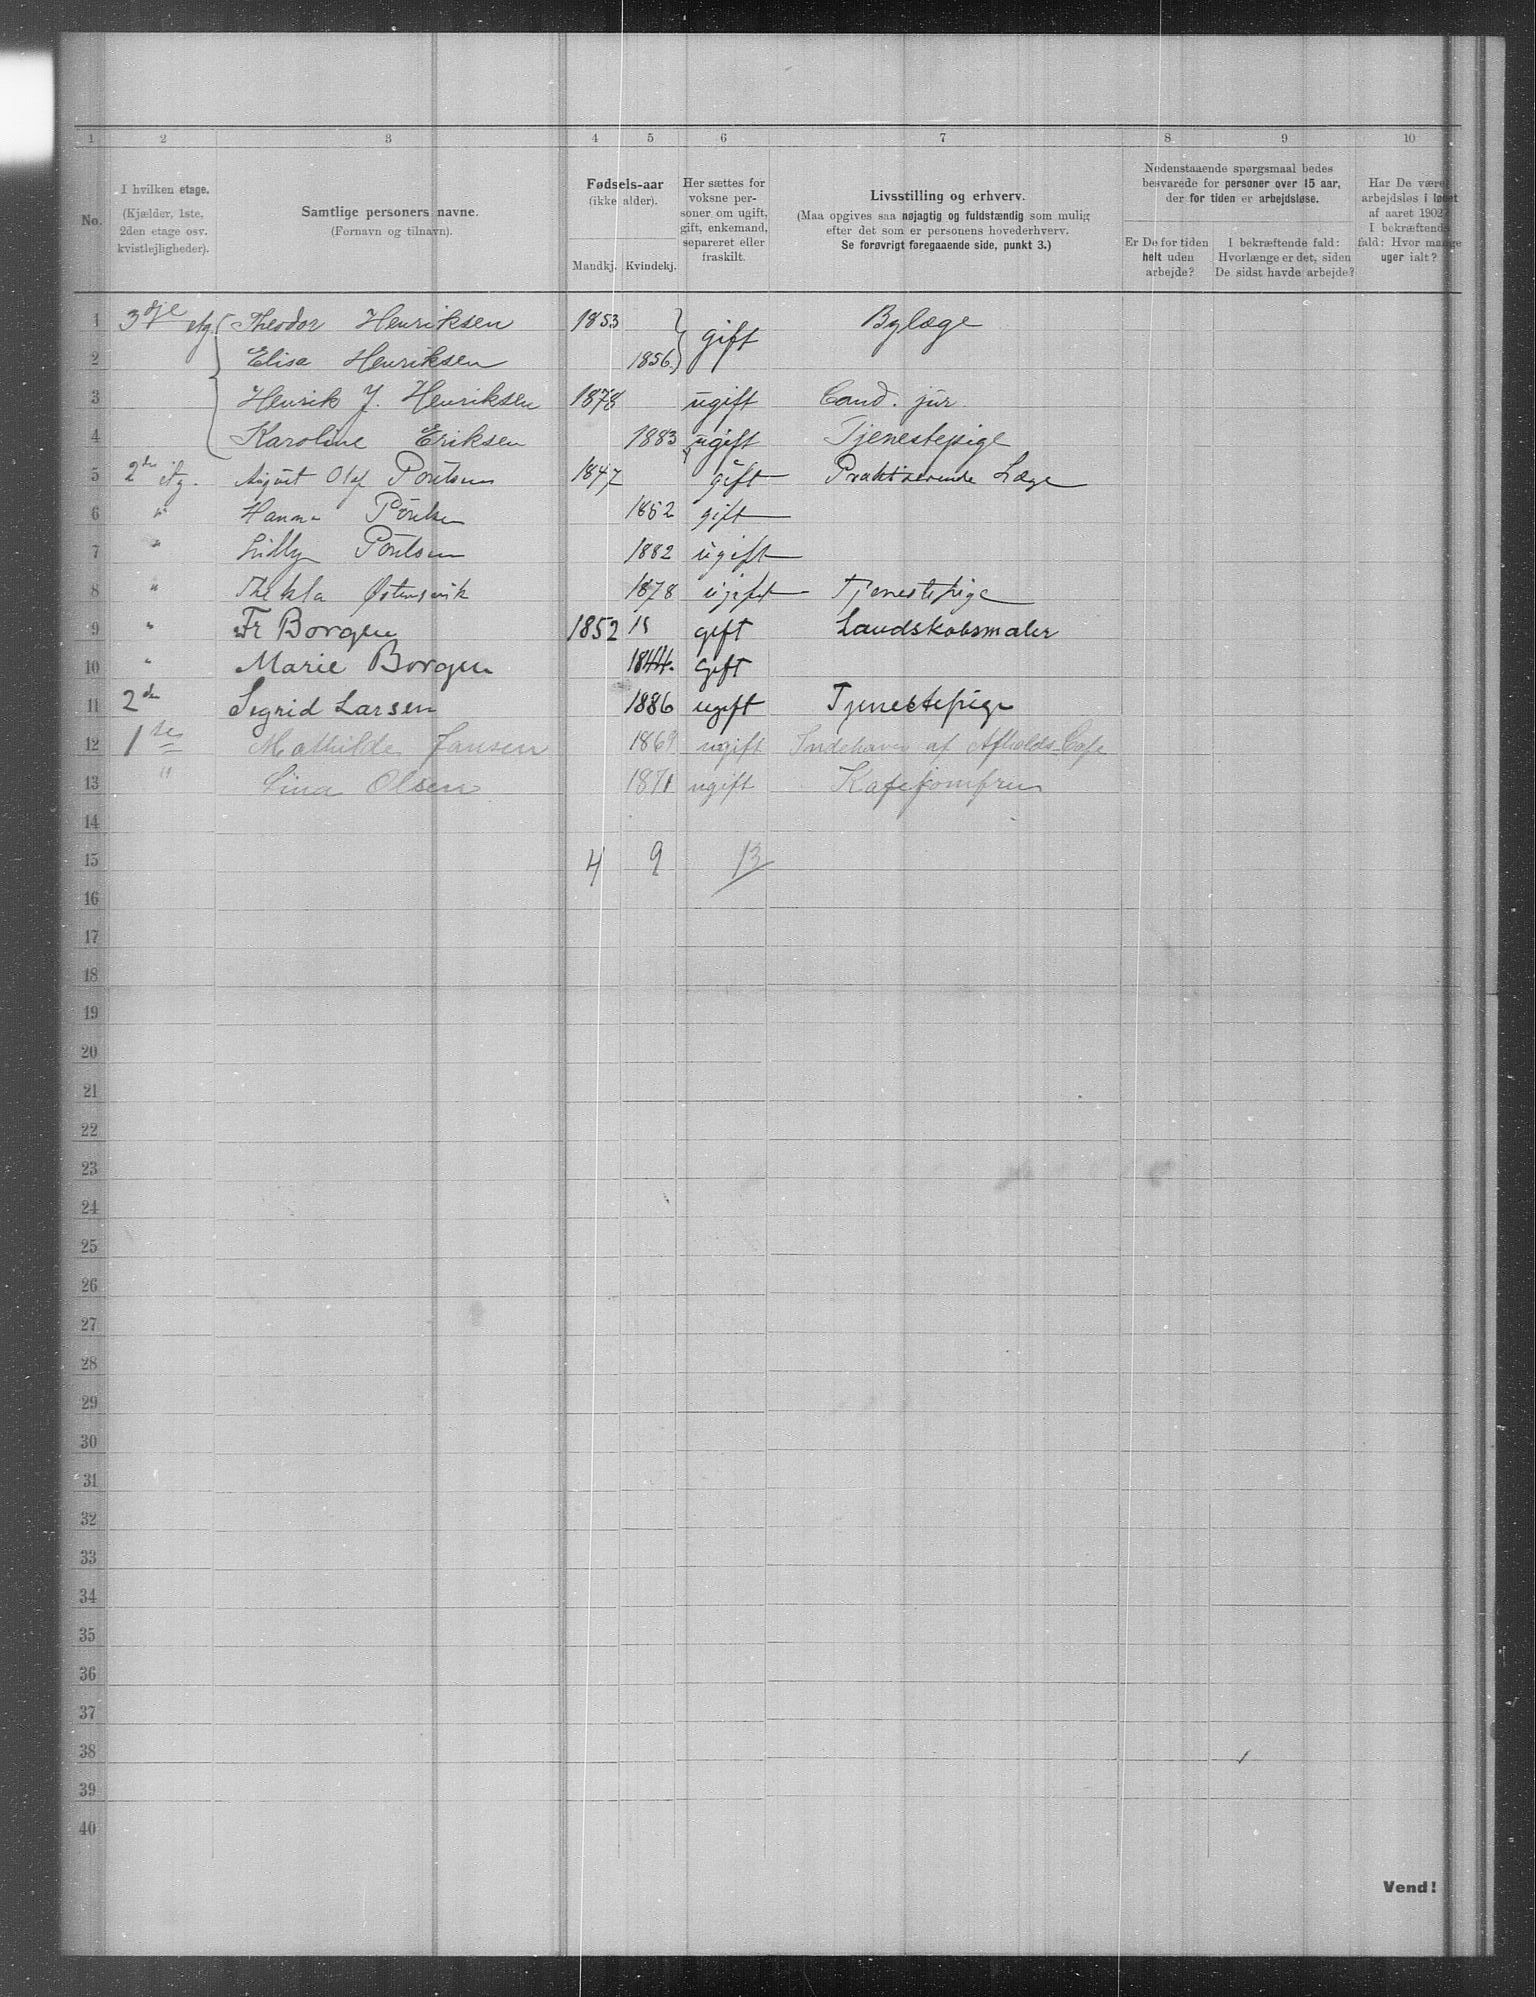 1 2 3 4 5 6 7 8 9 10
No.
I hvilken etage.
(Kjælder, 1ste,
2den etage osv.
kvistlejligheder).
Samtlige personers navne.
(Fornavn og tilnavn).
Fødsels-aar
(ikke alder).
Mandkj. Kvindekj.
Her sættes for
voksne per-
soner om ugift,
gift, enkemand,
separeret eller
fraskilt.
Livsstilling og erhverv.
(Maa opgives saa nøjagtig og fuldstændig som mulig
efter det som er personens hovederhverv.
Se forøvrigt foregaaende side, punkt 3.)
Nedenstaaende spørgsmaal bedes
besvarede for personer over 15 aar,
der for tiden er arbejdsløse.
Er De for tiden
helt uden
arbejde?
I bekræftende fald:
Hvorlænge er det, siden
De sidst havde arbejde?
Har De været
arbejdsløs i løbet
af aaret 1902?
I bekræftende
fald: Hvor mange
uger ialt?
1 3dje etg. Theodor Henriksen 1853 gift Bylæge
2 Elisa Henriksen 1856
3 Henrik J. Henriksen 1878 ugift Cand. jur.
4 Karoline Eriksen 1883 ugift Tjenestepige
5 2den etg. August Olaf Poulsen 1847 gift Praktiserende Læge
6 " Hanna Poulsen 1852 gift
7 " Lilly Poulsen 1882 ugift
8 " Thekla Østensvik 1878 ugift Tjenestepige
9 " Fr Borgen 1852 15 gift Landskabsmaler
10 " Marie Borgen 1844. gift
11 2den Sigrid Larsen 1886 ugift Tjenestepige
12 1ste Mathilde Jansen 1869 ugift Indehaver af Afholds-Cafe
13 " Lina Olsen 1871 ugift Kafejomfru
14
15 4 9 13
16
17
18
19
20
21
22
23
24
25
26
27
28
29
30
31
32
33
34
35
36
37
38
39
40
Vend!